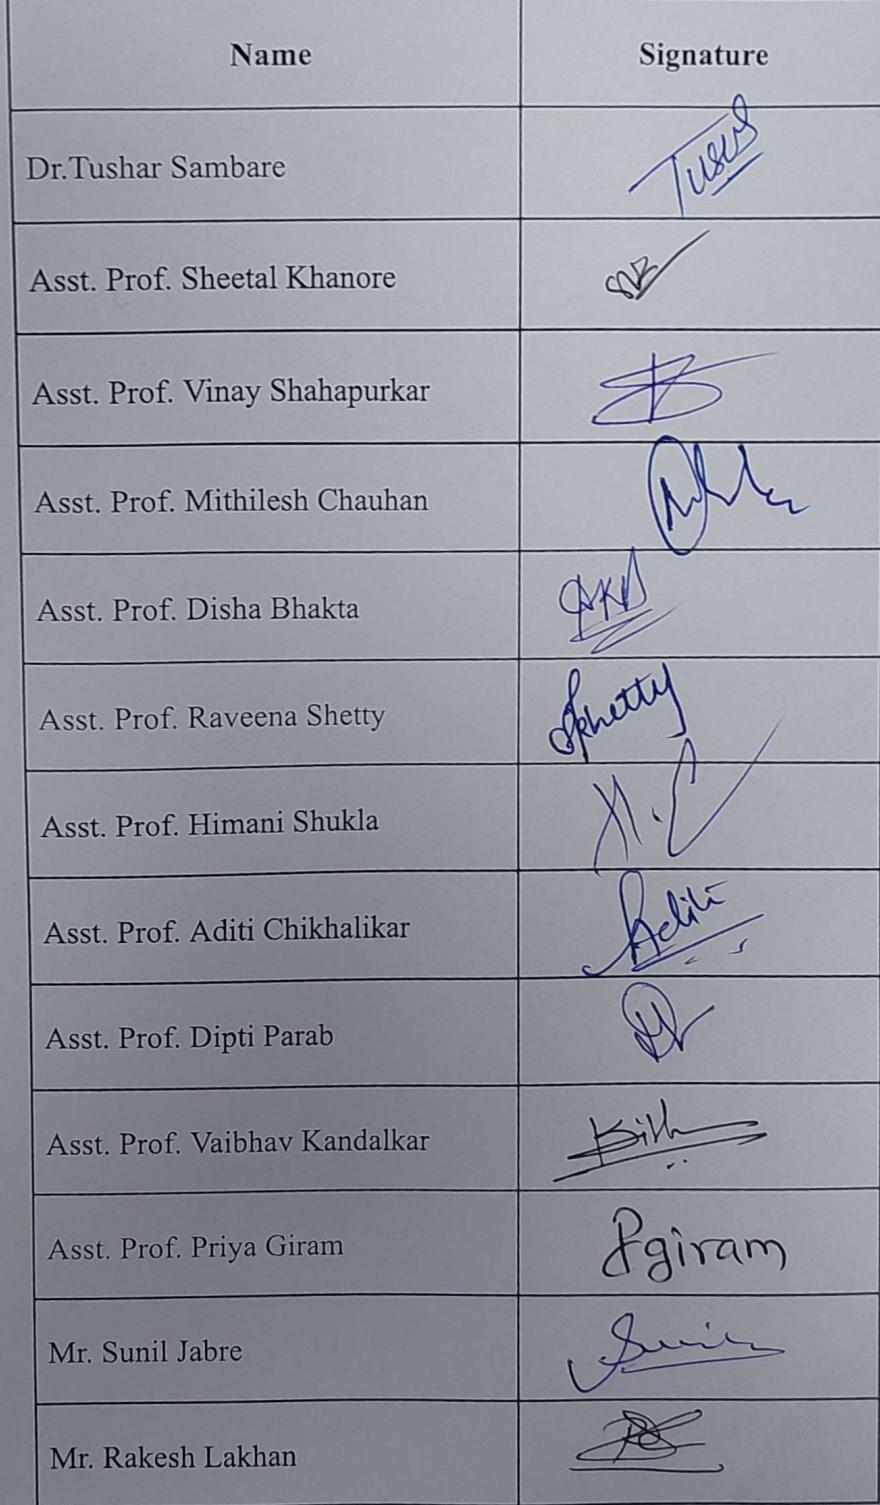 Name Signature
Dr.Tushar Sambare
Asst. Prof. Sheetal Khanore
Asst. Prof. Vinay Shahapurkar
Asst. Prof. Mithilesh Chauhan
Asst. Prof. Disha Bhakta
Asst. Prof. Raveena Shetty Shetty
Asst. Prof. Himani Shukla
Asst. Prof. Aditi Chikhalikar Aditi
Asst. Prof. Dipti Parab
Asst. Prof. Vaibhav Kandalkar
Asst. Prof. Priya Giram Pgiram
Mr. Sunil Jabre
Mr. Rakesh Lakhan